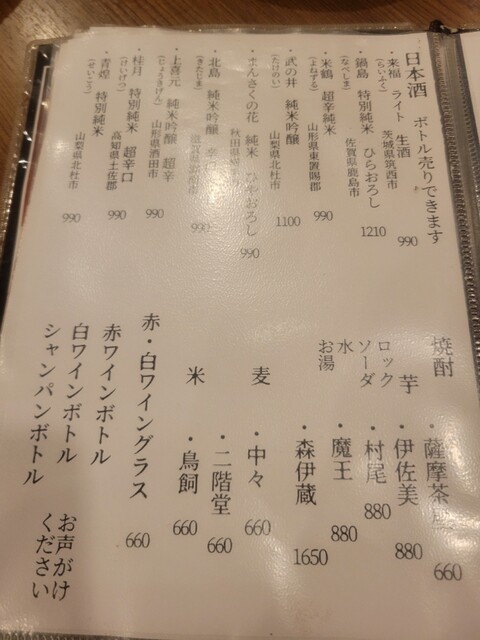 日本酒 ボトル売りできます
・来福 ライト 生酒
(らいふく) 茨城県筑西市 990
・鍋島 特別純米 ひやおろし
(なべしま) 佐賀県鹿島市 1210
・米鶴 超辛純米
(よねずる) 山形県東置賜郡 990
・武の井 純米吟醸
(たけのい) 山梨県北杜市 1100
・まんさくの花 純米 ひやおろし
秋田県 990
・北島 純米吟醸
(きたじま) 滋賀県 990
・上喜元 純米吟醸 超辛
(じょうきげん) 山形県酒田市 990
・桂月 特別純米 超辛口
(けいげつ) 高知県土佐郡 990
・青煌 特別純米
(せいこう) 山梨県北杜市 990
焼酎
ロック
ソーダ
水
お湯
芋
・薩摩茶 660
・伊佐美 880
・村尾 880
・魔王 880
・森伊蔵 1650
麦
・中々 660
・二階堂 660
米
・鳥飼 660
赤・白ワイングラス 660
赤ワインボトル
白ワインボトル
シャンパンボトル
お声がけ
ください